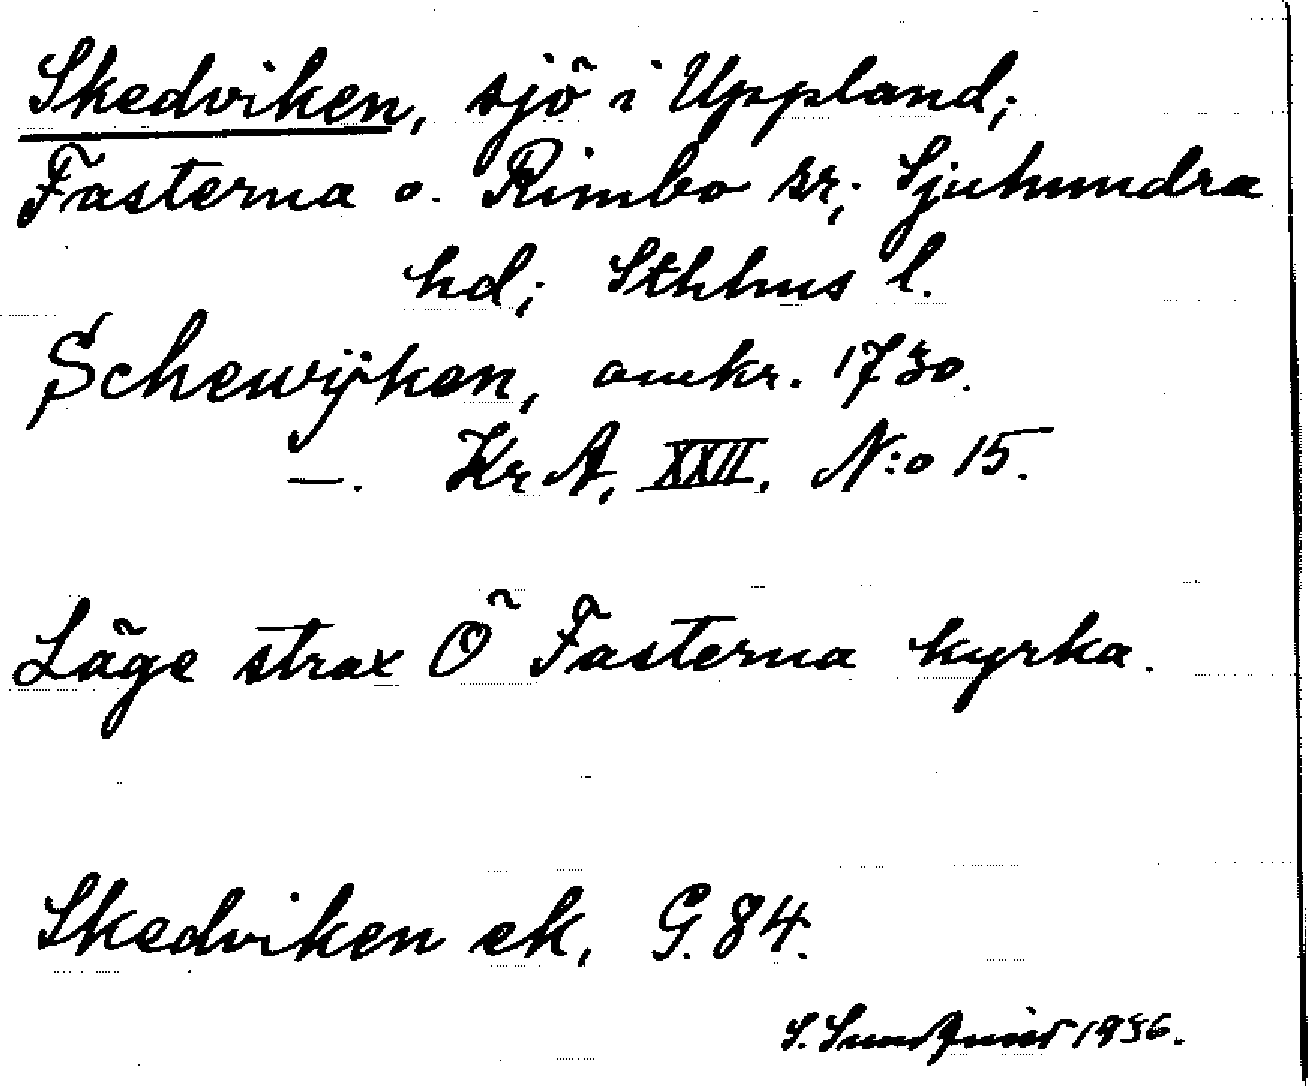 Skedviken, sjö i Uppland;
Fasterna o. Rimbo sr; Sjuhundra
hd; Sthlms l.
Schewijken, omkr. 1730.
—. KrA, XXII, N:o 15.
Läge strax Ö Fasterna kyrka.
Skedviken ek, G. 84.
S. Sundquist 1936.